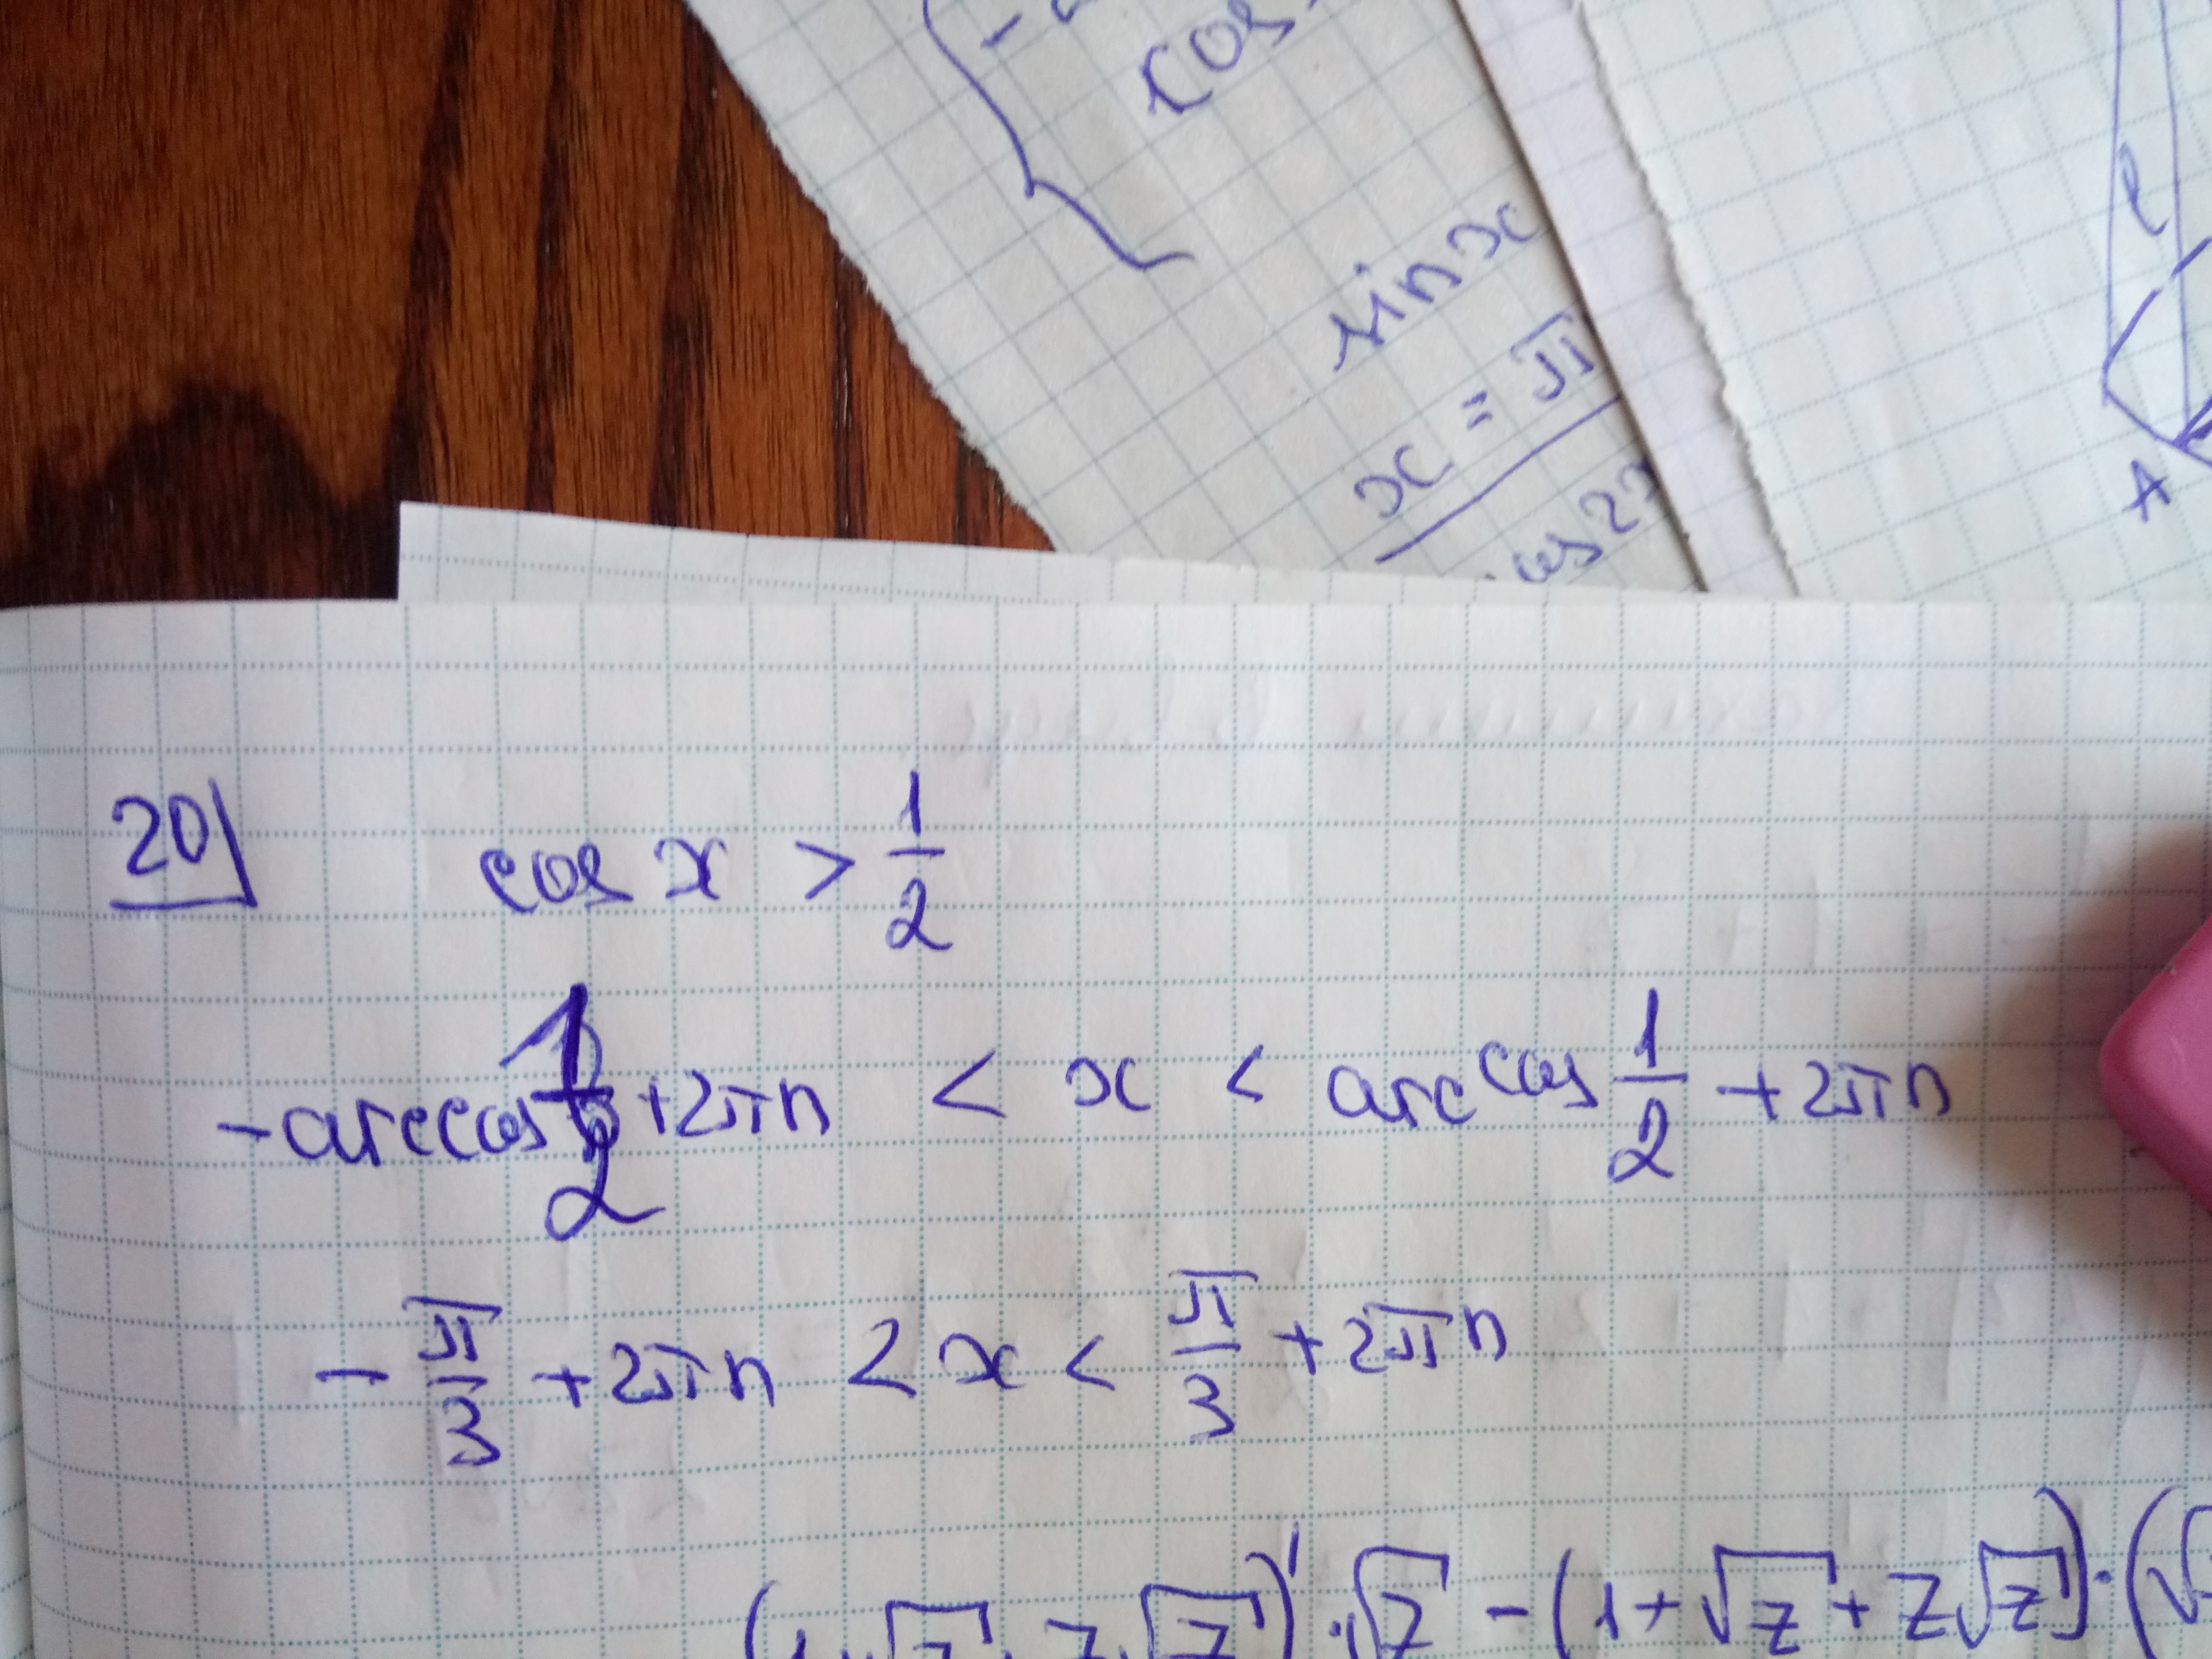 cos
sin x
x = π
cos 2x
l
A
20
cos x > 1/2
-arccos 1/2 + 2πn < x < arccos 1/2 + 2πn
-π/3 + 2πn < x < π/3 + 2πn
√z z√z)' · √z - (1 + √z + z√z) · (√